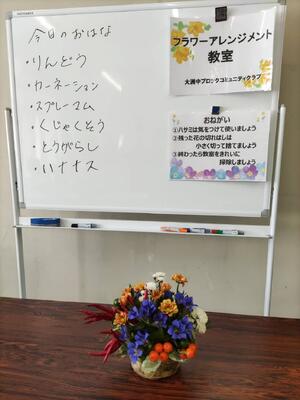 今日のおはな
・りんどう
・カーネーション
・スプレーマム
・くじゃくそう
・とうがらし
・ハナナス
フラワーアレンジメント
教室
大洲中ブロックコミュニティクラブ
おねがい
①ハサミは気をつけて使いましょう
②残った花の切れはしは
小さく切って捨てましょう
③終わったら教室をきれいに
掃除しましょう